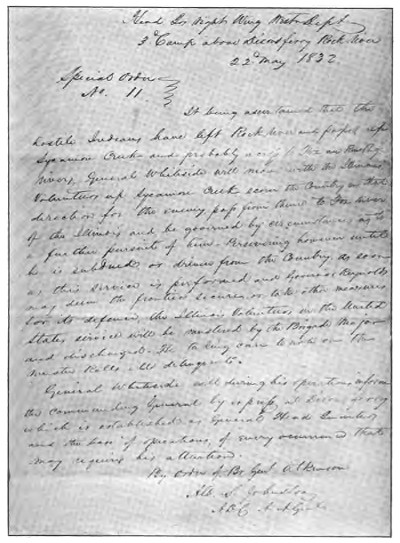 Head Qrs Right Wing West Dept
3d Camp above Dixons ferry Rock River
22d May 1832
Special Order
No. 11.
It being ascertained that the
hostile Indians have left Rock River and passed up
Sycamore Creek and probably over to Fox River
Rivers, General Whiteside will move with the Illinois
Volunteers up Sycamore Creek scour the Country in that
direction for the enemy, pass from thence to Fox River
of the Illinois and be governed by circumstances as to
a further pursuit of him. Persevering however until
he is subdued or driven from the Country. As soon
as this service is performed and Governor Reynolds
may deem the frontier secure, or take other measures
for its defence, the Illinois Volunteers in the United
States service will be mustered by the Brigade Major
and discharged. He taking care to note on the
Muster Rolls all delinquents.
General Whiteside will during his operations inform
the commanding General by express, at Dixons ferry
which is established as General Head Quarters
and the base of operations, of every occurrence that
may require his attention.
By Order of Br Genl Atkinson
A. S. Johnston
ADC & A A Genl